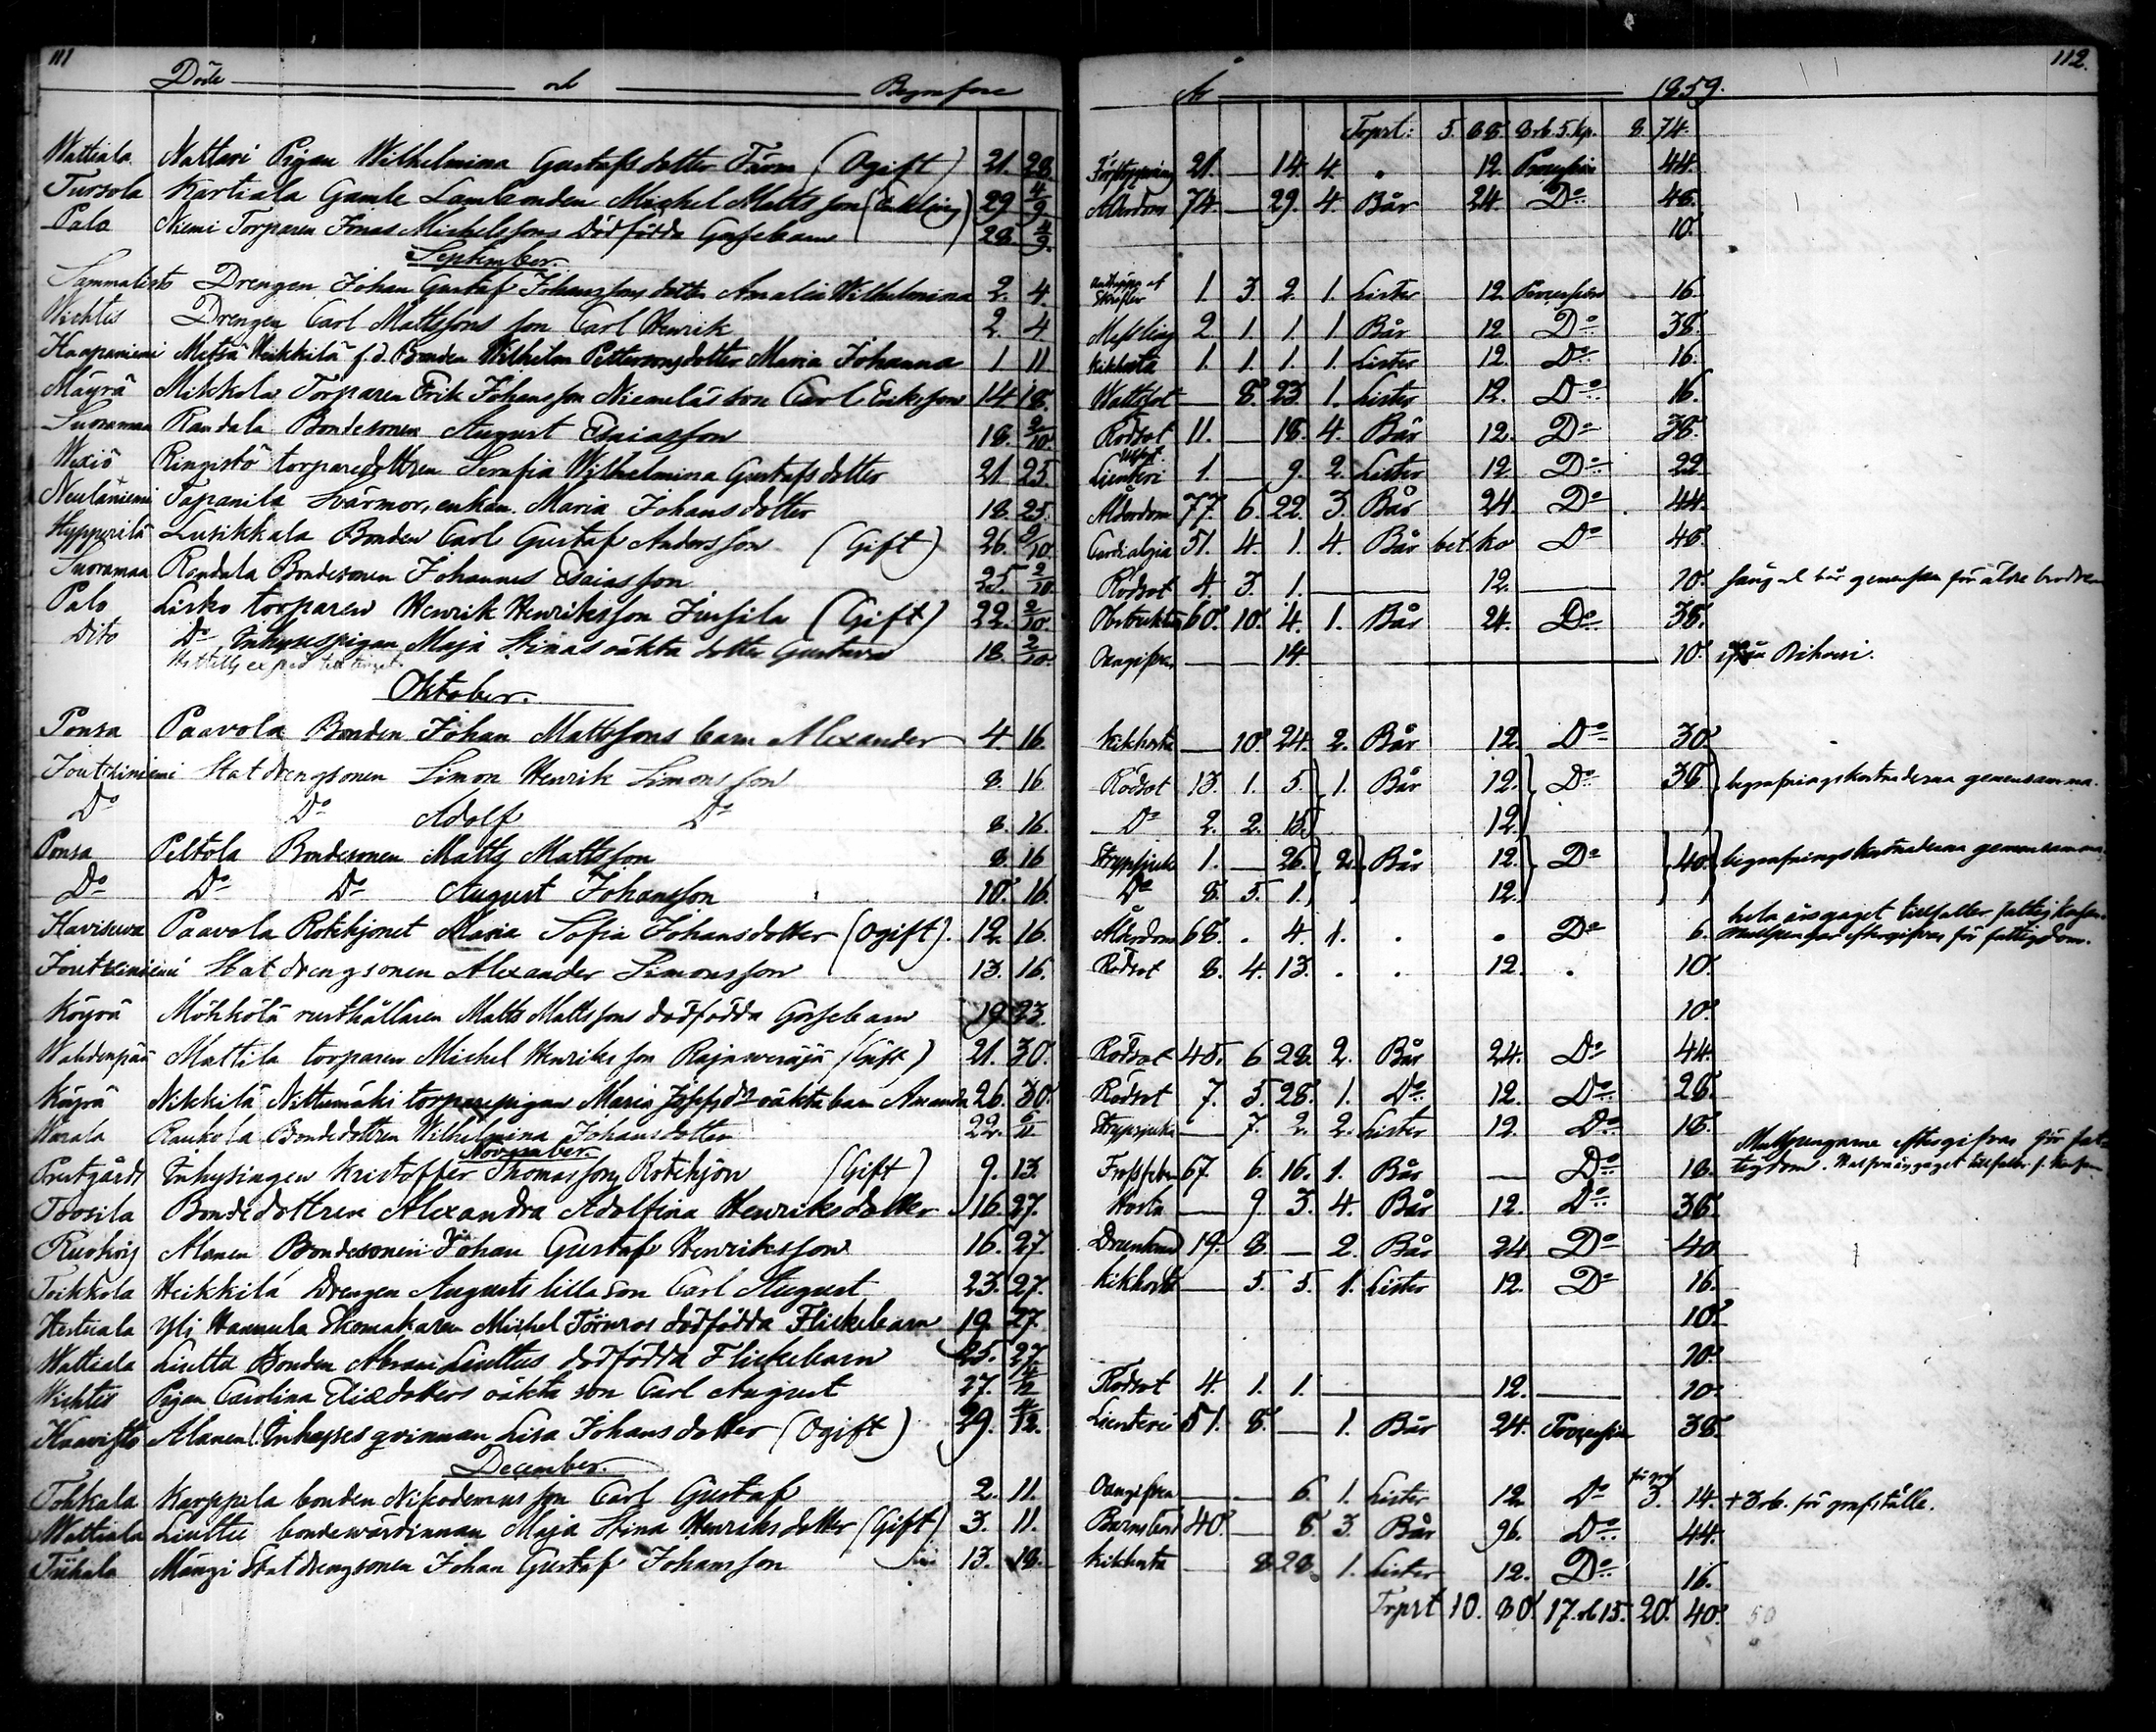 111
Döde och Begrafne
Wattiala Nattari Pigan Wilhelmina Gustafsdotter Färm (Ogift) 21. 28.
Tursola Kartiala Gamle Lambonden Michel Mattsson (Enkling) 29 4/9
Palo Niemi Torparen Jonas Michelssons Dödfödda Gossebarn 28. 4/9.
September.
Sammalisto Drengen Johan Gustaf Johanssons dotter Amalia Wilhelmina 2. 4.
Wichtis Drengen Carl Mattssons son Carl Henrik 2. 4
Haapaniemi Metsä Heikkilä f.d. Bonden Wilhelm Pettersons dotter Maria Johanna 1 11
Mäyrä Mikkola Torparen Erik Johansson Niemeläs son Carl Eriksson 14 18.
Suoramaa Randala Bondesonen August Esaiasson 18. 2/10.
Wexiö Ringistö torparedottren Serafia Wilhelmina Gustafsdotter 21. 25.
Neulaniemi Tapanila Svärmor, enkan. Maria Johansdotter 18. 25.
Hyppärilä Lusikkala Bonden Carl Gustaf Andersson (Gift) 26. 2/10.
Suoramaa Randala Bondesonen Johannes Esaiasson 25. 2/10.
Palo Lisko torparen Henrik Henriksson Jussila (Gift) 22. 2/10
Dito Do Inhysespigan Maja Stinas oäkta dotter Gustava 18. 2/10
Oktober.
Ponsa Paavola Bonden Johan Mattssons barn Alexander 4. 16.
Joutsiniemi Statdrengsonen Simon Henrik Simonsson 8. 16
Do Do Adolf Do 8. 16.
Ponsa Peltola Bondesonen Matts Mattsson 8. 16
Do Do Do August Johansson 10. 16.
Haviseva Paavola Rotehjonet Maria Sofia Johansdotter (Ogift). 12. 16.
Joutsiniemi Statdrengsonen Alexander Simonsson 13. 16.
Köyrä Möhkölä rusthållaren Matts Mattssons dödfödda Gossebarn 19. 23.
Wahdenpää Mattila torparen Michel Henriksson Rajaveräjä (Gift) 21. 30.
Käyrä Nikkilä Nittumäki torparepigan Maria oäkta barn Amanda 26. 30.
Raukola Bondedottren Wilhelmina Johansdotter 22. 6/11
November.
Prestgård Inhysingen Kristoffer Thomasson, Rotehjon (Gift) 9. 13.
Toosila Bondedottren Alexandra Adolfina Henriksdotter 16. 27.
Alanen Bondesonen Johan Gustaf Henriksson 16. 27.
Toikkola Heikkilä Drengen Augusts lilla son Carl August 23. 27.
Yli Hannula Skomakaren Michel Törnros dödfödda Flickebarn 19. 27.
Wattiala Liutta Bonden Abram Liuttus dödfödda Flickebarn 25. 27.
Wichtis Pigan Carolina Eliedotters oäkta son Carl August 27. 4/12
Haavisto Alanen Inhyses qvinnan Lisa Johansdotter (Ogift) 29. 4/12.
December.
Tohkala Karppila bonden Nikodemus son Carl Gustaf 2. 11.
Wattiala Liuttu bondewärdinnan Maja Stina Henriksdotter (Gift) 3. 11.
Tiihala Mangi Statdrengsonen Johan Gustaf Johansson 13. 18.
112.
År 1859.
Trprt: 5. 88. 8 rb. 5. kp. 8. 74.
21. — 14. 4. 12. Procession 44.
Ålderdom 74. — 29. 4. Bår 24. Do 48.
10.
1. 3. 2. 1. Lister 12. Procession 16.
Messling 2. 1. 1. 1 Bår 12. Do 38.
Kikhosta 1. 1. 1. 1. Lister 12. Do 16.
Wattsot — 8. 23. 1. Lister 12. Do 16.
Rödsot 11. — 18. 4. Bår 12. Do 38.
Lienteri 1. — 9. 2. Lister 12. Do 22
Ålderdom 77. 6. 22. 3. Bår 24. Do 44.
Cardialgia 51. 4. 1. 4. Bår bet. ko Do 48.
Rödsot 4. 3. 1. — 12. — 10. säng och bår gemensam för äldre brodren
Obstruktion 60. 10. 4. 1. Bår 24. Do 38.
— 14. — 10.
Kikhosta — 10 24. 2. Bår 12. Do 30.
Rödsot 13. 1. 5. 1. Bår 12. Do 36. begrafningskostnaderna gemensamma.
Do 2. 2. 15. 12.
Strypsjuka 1. — 26. 2. Bår 12. Do 40. begrafningskostnaderna gemensamma.
Do 8. 5. 1. 12.
hela åsgaget tillfaller fattigkassan
Ålderdom 68. . 4. 1. . . Do 6. Mullpengar eftergifvas för fattigdom.
Rödsot 8. 4. 13. . . 12. . 10.
10.
Rödsot 45. 6 28. 2. Bår 24. Do 44.
Rödsot 7. 5. 28. 1. Do 12. Do 28.
Strypsjuka — 7. 2. 2. Lister 12. Do 18.
Mullpengarne eftergifvas för fat-
67. 6. 16. 1. Bår — Do 18. tigdom.
Hosta — 9. 3. 4. Bår 12. Do 36.
Drunknad 19. 8 — 2. Bår 24. Do 40
Kikhosta — 5. 5. 1. Lister 12. Do 16.
10.
10.
Rödsot 4. 1. 1. — 12. — 10.
Lienteri 51. 8. — 1. Bår 24. Procession 38.
— 6. 1. Lister 12. Do 3. 14. + 3 rb. för grafställe.
Barnsbörd 40. — 8 3. Bår 96. Do 44.
Kikhosta — 8 28. 1. Lister 12. Do 16.
Trprt 10. 80. 17. rb 15. 20. 40. 50